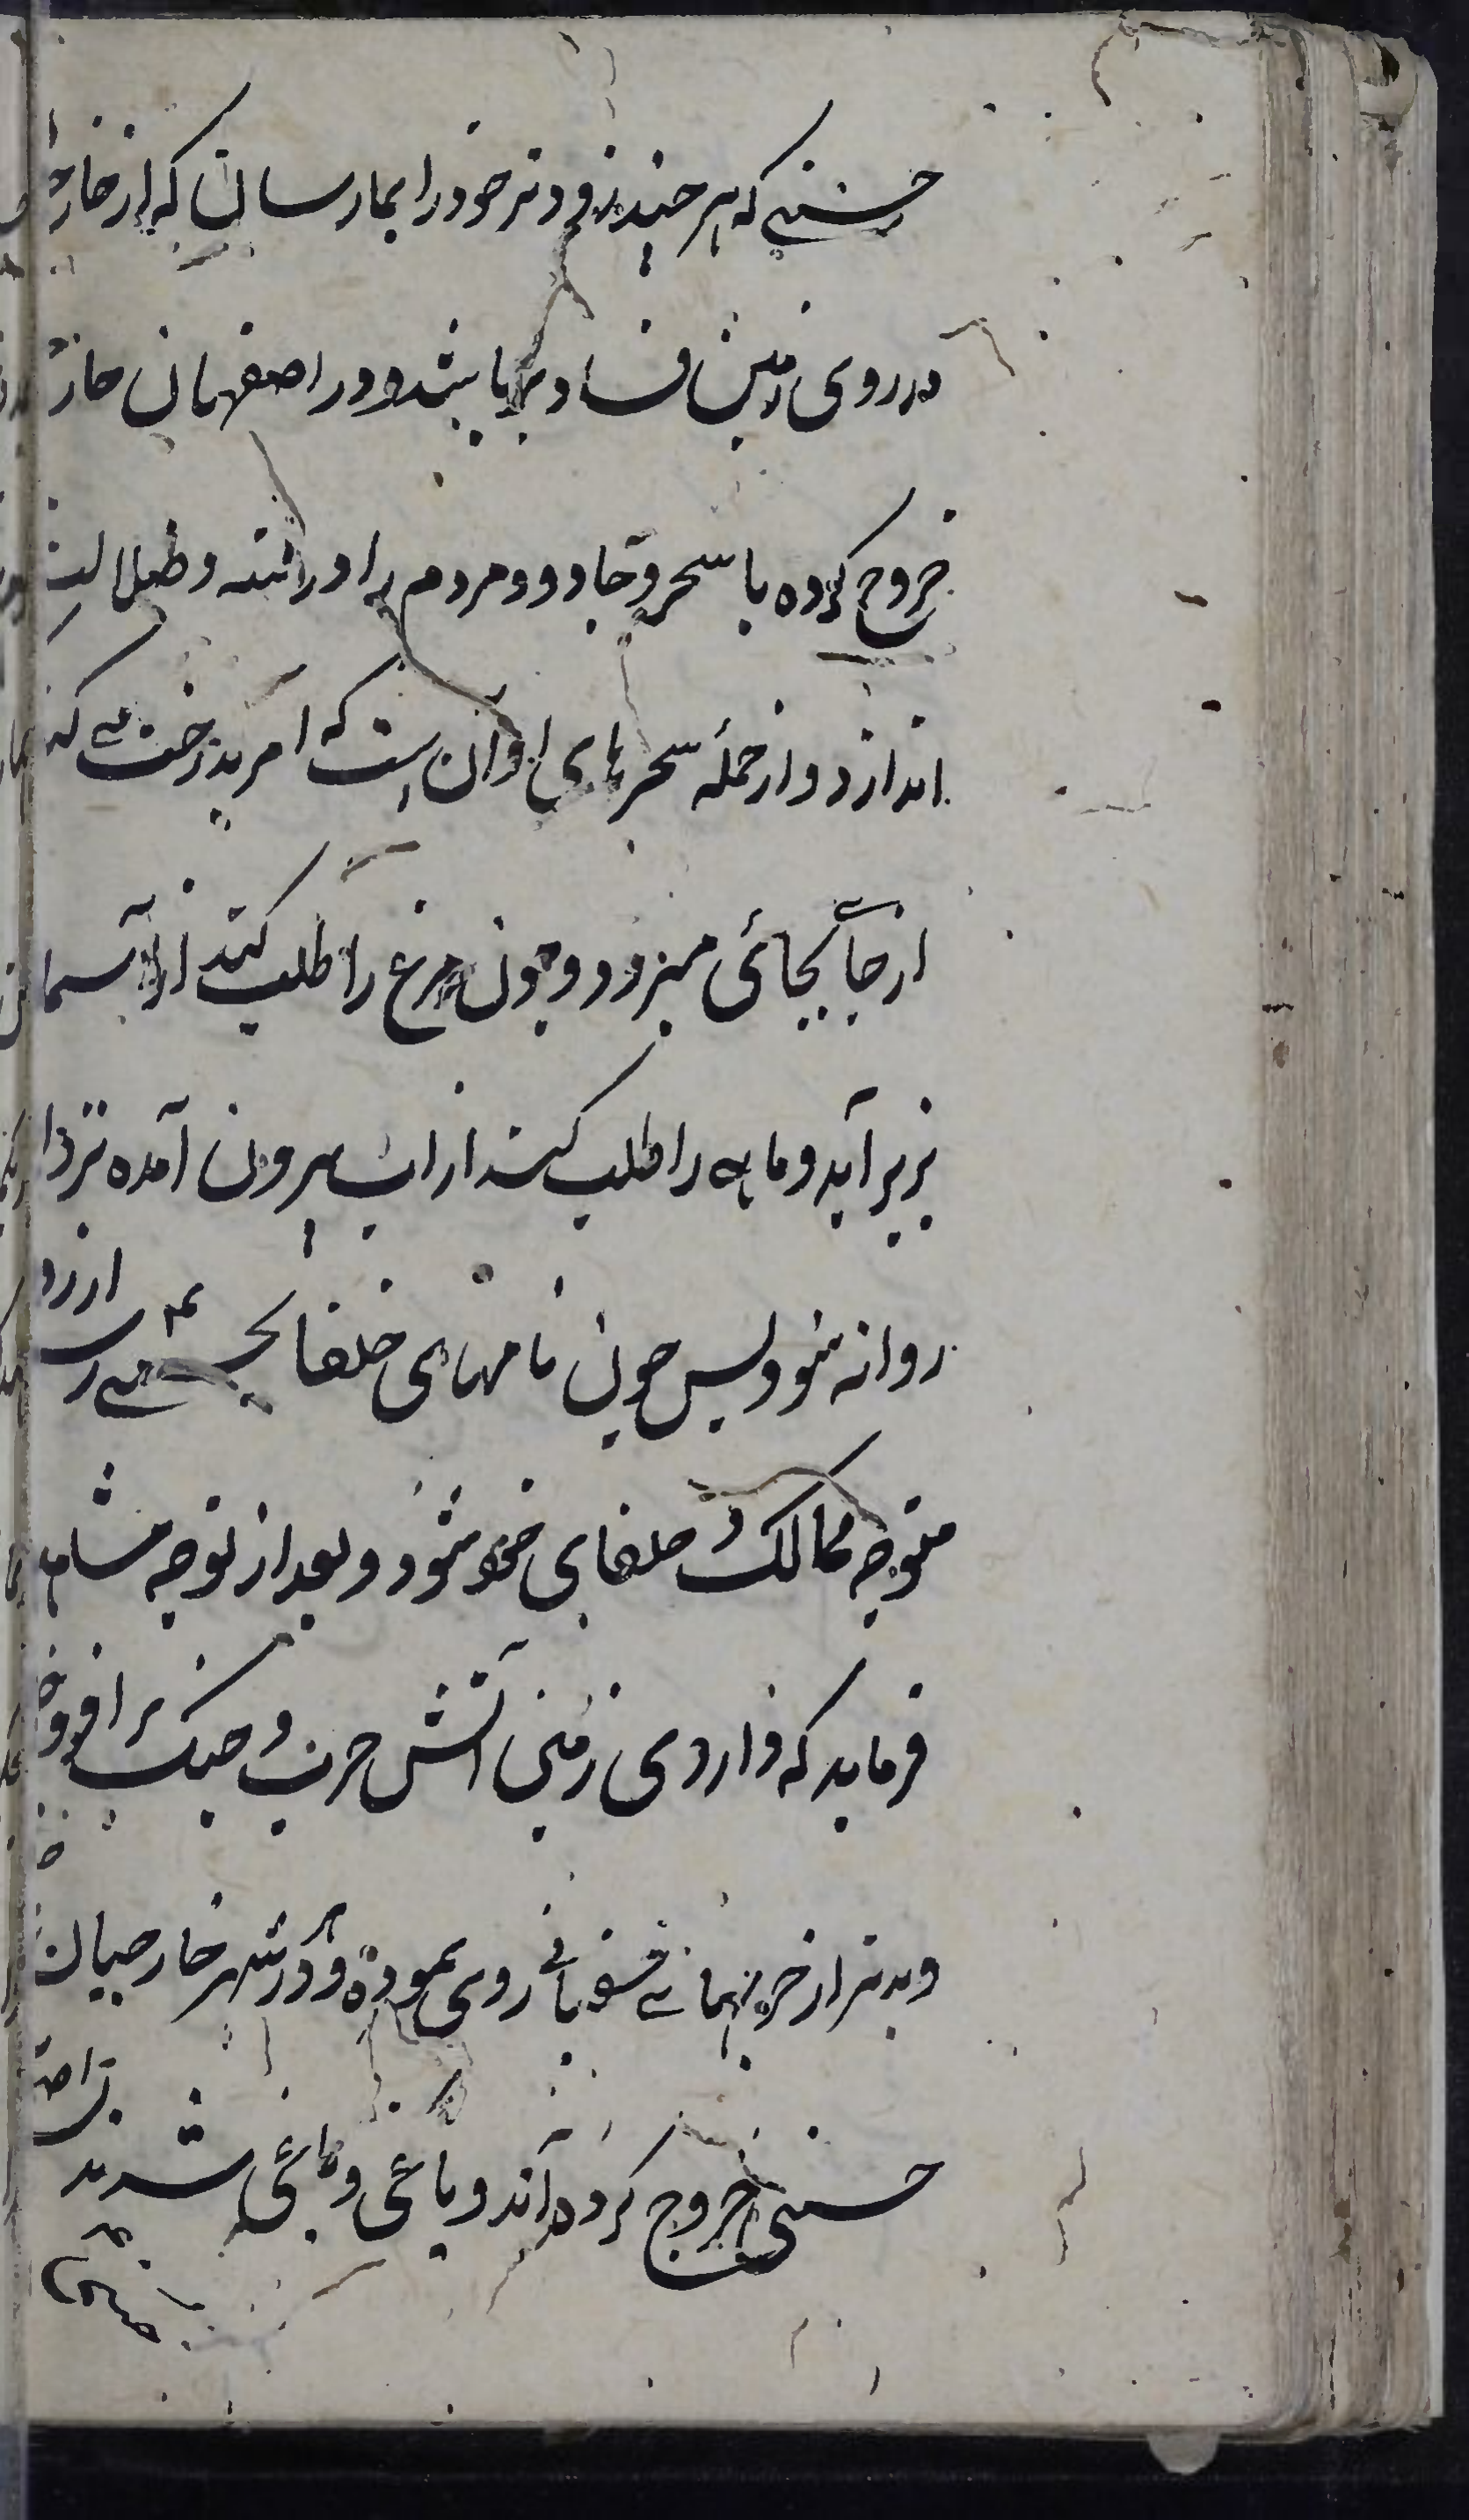 حسنی که هر چند زودتر خود را بما رسان که از خار
در روی زمین فساد برپا شد و در اصفهان خار
خروج کرده با سحر و جادو و مردم را در فتنه و ضلالت
اندازد و از جمله سحرهای او آن است که امر بدرخت می کند
از جا بجائی میرود و چون مرغ را طلب کند از آسمان
بزیر آید و ماهی را طلب کند از آب بیرون آمده نزد ا
روانه شود پس چون نامهای خلفا می رسد از رد
متوجه ممالک خلفای خود شود و بعد از توجه مشاهده
فرماید که در روی زمین آتش حرب و جنگ بر افروخته
و بدتر از خود روی نموده و در شهر خارجیان
حسنی خروج کرده آند و یاغی و طاغی شدند